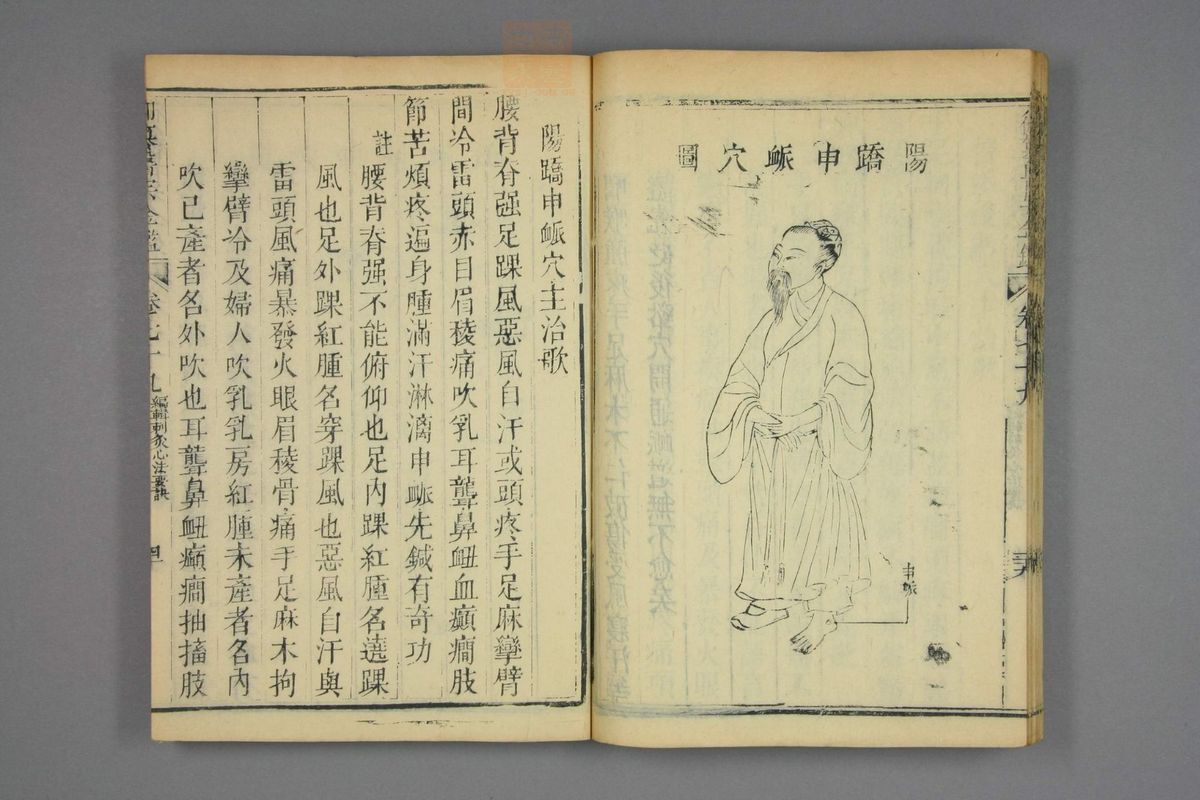 陽蹻申䘑穴圖
申䘑
陽蹻申䘑穴主治歌
腰背脊强足踝風惡風自汗或頭疼手足麻攣臂
間冷雷頭赤目眉稜痛吹乳耳聾鼻衄血癲癎肢
節苦煩疼遍身腫滿汗淋漓申䘑先鍼有奇功
註
腰背脊强不能俯仰也足内踝紅腫名遶踝
風也足外踝紅腫名穿踝風也惡風自汗與
雷頭風痛暴發火眼眉稜骨痛手足麻木拘
攣臂冷及婦人吹乳乳房紅腫未產者名内
吹已產者名外吹也耳聾鼻衄癲癎抽搐肢
卷七十九
編輯刺灸心法要訣